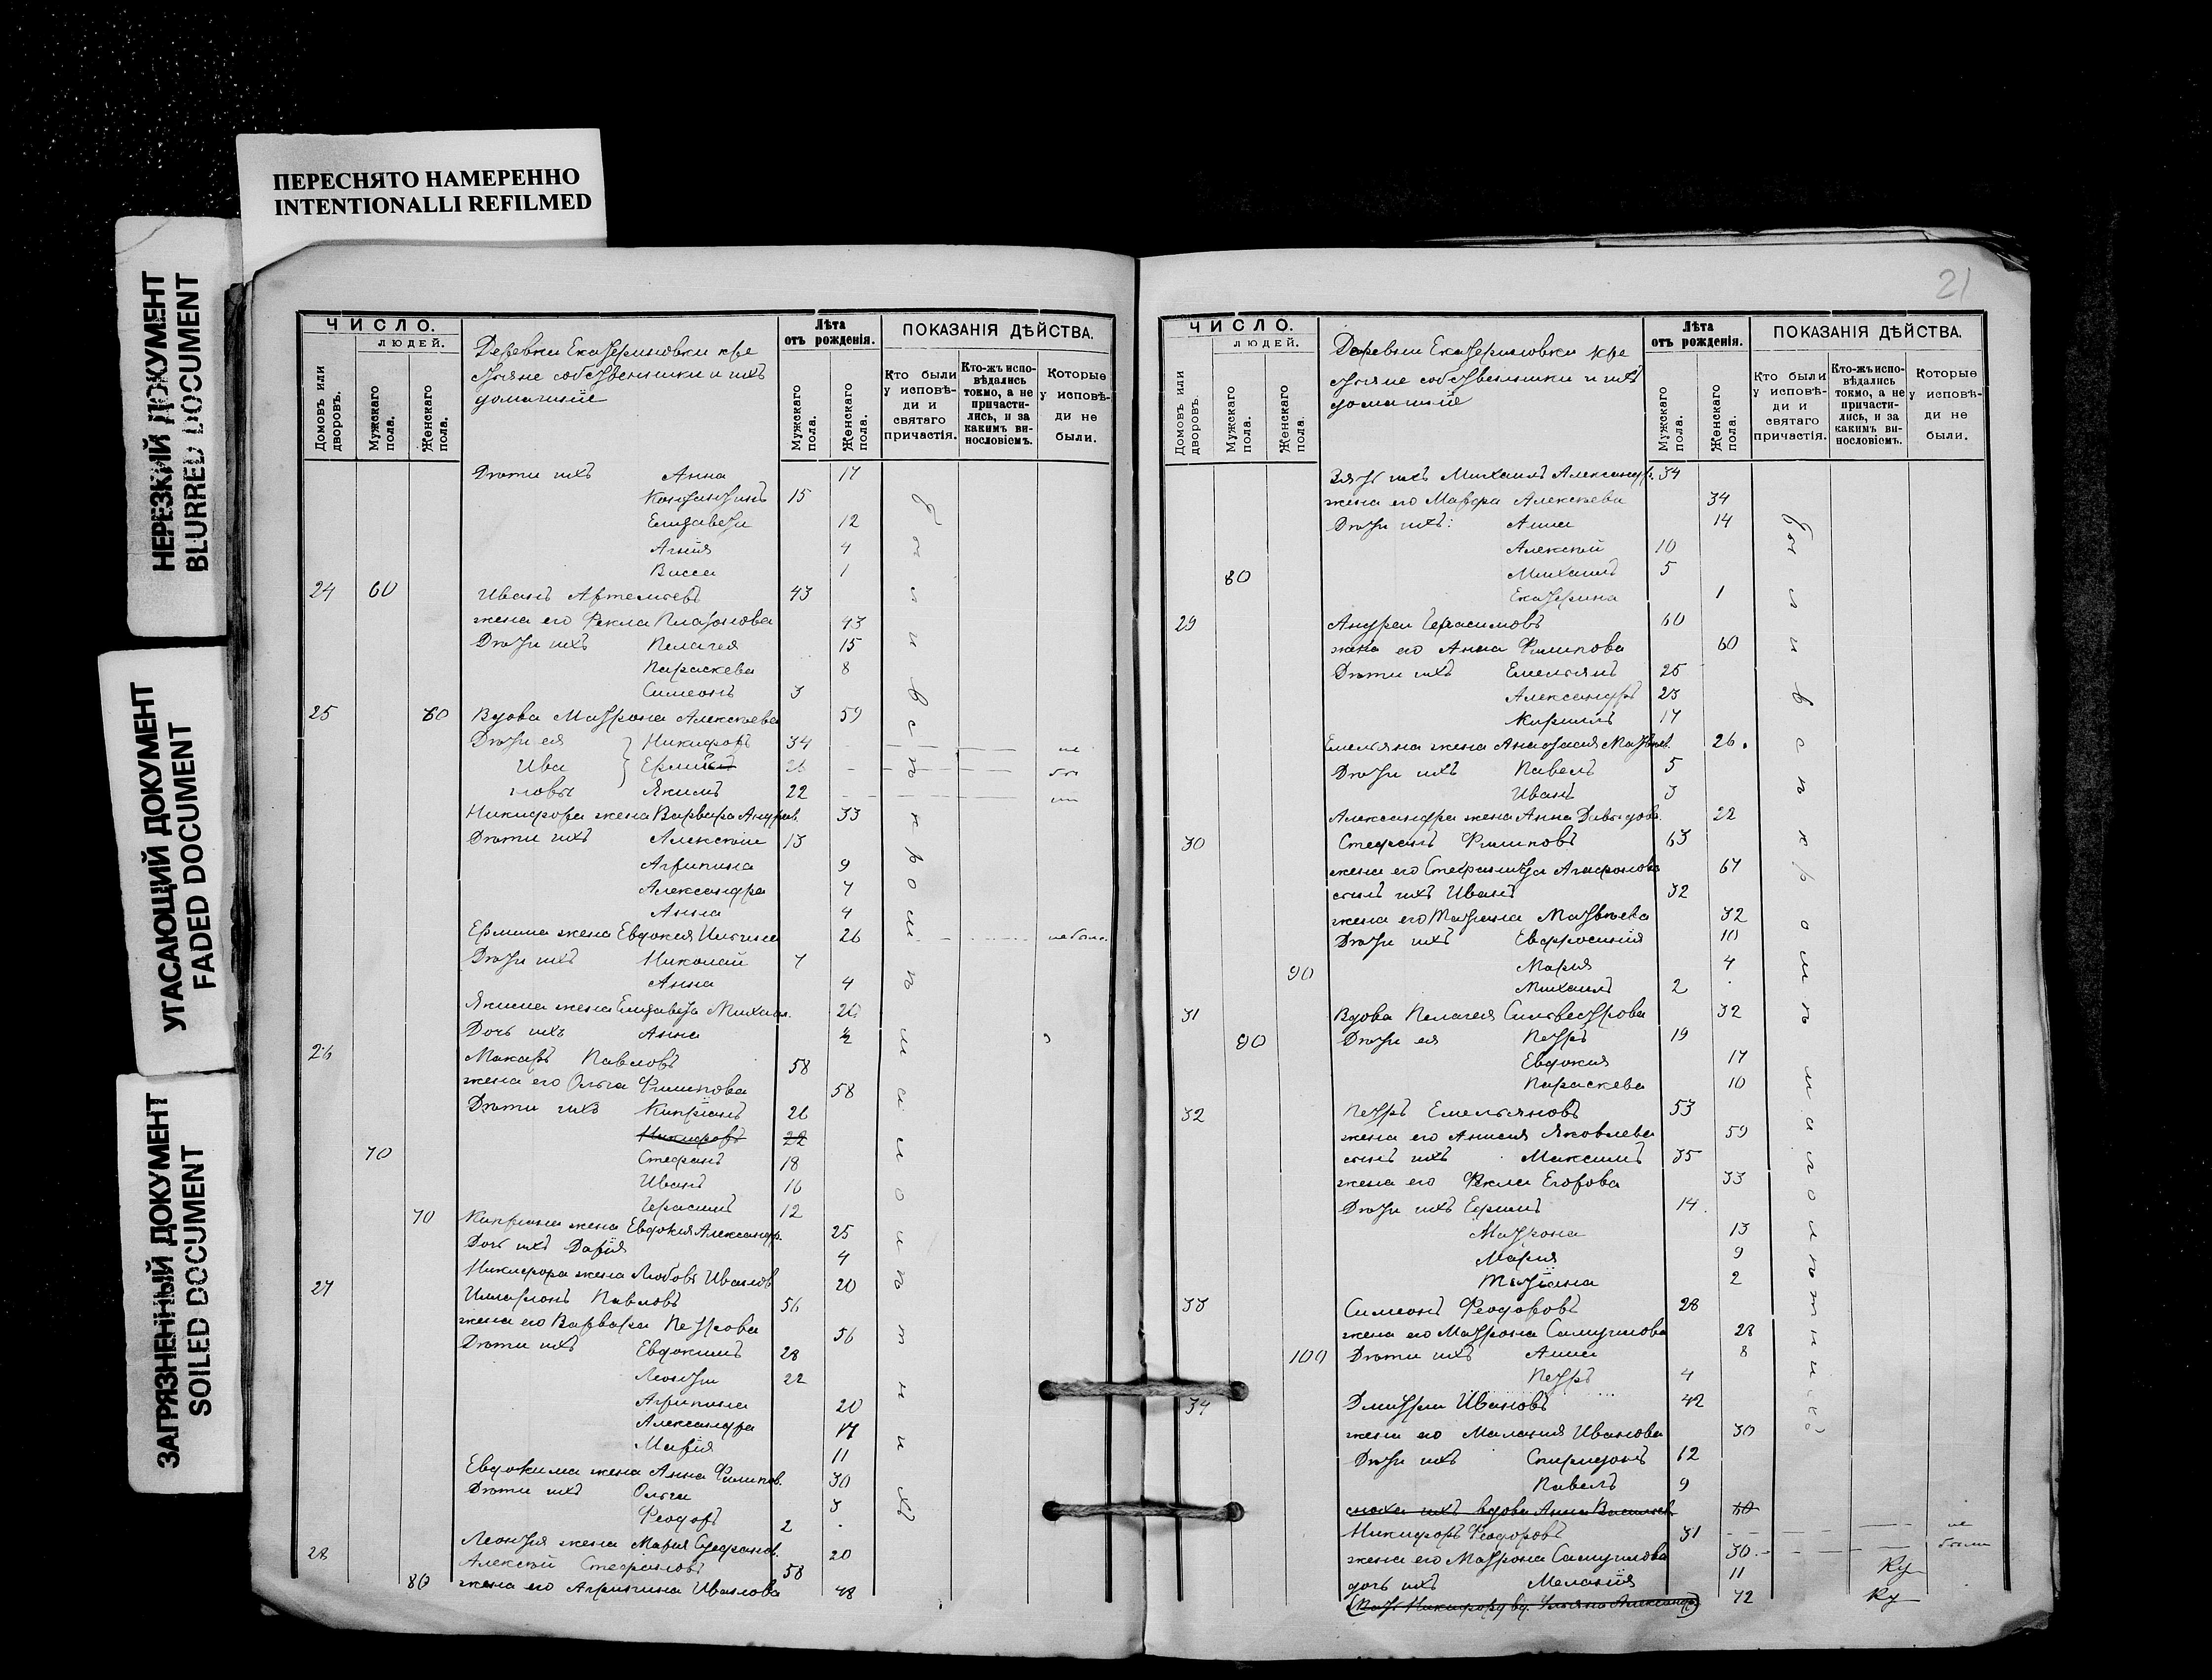 ПЕРЕСНЯТО НАМЕРЕННО
INTENTIONALLI REFILMED
НЕРЕЗКИЙ ДОКУМЕНТ
BLURRED DOCUMENT
УГАСАЮЩИЙ ДОКУМЕНТ
FADED DOCUMENT
ЗАГРЯЗНЕННЫЙ ДОКУМЕНТ
SOILED DOCUMENT
ЧИСЛО.
ЛЮДЕЙ.
Домовъ или дворовъ.
Мужскаго пола.
Женскаго пола.
Деревни Екатериновки кре
стьяне собственники и ихъ
домашніе
Лѣта
отъ рожденія.
Мужскаго пола.
Женскаго пола.
ПОКАЗАНІЯ ДѢЙСТВА.
Кто были у исповѣ-ди и святаго причастія.
Кто-жъ испо-вѣдались токмо, а не причасти-лись, и за какимъ ви-нословіемъ.
Которые у исповѣ-ди не были.
Дѣти ихъ Анна 17
Константинъ 15
Елизавета 12
Агнія 4
Васса 1
24 60 Иванъ Артемьевъ 43
жена его Фекла Платонова 43
Дѣти ихъ Пелагея 15
Параскева 8
Симеонъ 3
25 60 Вдова Матрона Алексѣева 59
Дѣти ея Никифоръ 34 не
Ива 26 бы
новы Якимъ 22 ли
Никифора жена Варвара Андреев. 33
Дѣти ихъ Алексѣй 13
Агрипина 9
Александра 7
Анна 4
Ермила жена Евдокия Ильина 26 не была.
Дѣти ихъ Николай 7
Анна 4
Якима жена Елизавета Михаил. 20
Дочь ихъ Анна 2
26 Макаръ Павловъ 58
жена его Ольга Филипова 58
Дѣти ихъ Кипріанъ 26
Никифоръ 22
70 Стефанъ 18
Иванъ 16
Герасимъ 12
70 Кипріана жена Евдокия Александр. 25
Дочь ихъ Дарія 4
Никифора жена Любовь Иванов. 20
27 Илларіонъ Павловъ 56
жена его Варвара Петрова 56
Дѣти ихъ Евдокимъ 28
Леонтій 22
Агрипина 20
Александра 17
Марія 11
Евдокима жена Анна Филипов. 30
Дѣти ихъ Ольга 3
Феодоръ 2
Леонтія жена Мария Стефанов. 20
28 Алексѣй Стефановъ 58
80 жена его Агрипина Иванова 48
были вси
21
ЧИСЛО.
ЛЮДЕЙ.
Домовъ или дворовъ.
Мужскаго пола.
Женскаго пола.
Деревни Екатериновки кре
стьяне собственники и ихъ
домашніе
Лѣта
отъ рожденія.
Мужскаго пола.
Женскаго пола.
ПОКАЗАНІЯ ДѢЙСТВА.
Кто были у исповѣ-ди и святаго причастія.
Кто-жъ испо-вѣдались токмо, а не причасти-лись, и за какимъ ви-нословіемъ.
Которые у исповѣ-ди не были.
Зять ихъ Михаилъ Александр. 34
жена его Марфа Алексѣева 34
Дѣти ихъ: Анна 14
Алексѣй 10
80 Михаилъ 5
Екатерина 1
29 Андрей Герасимовъ 60
жена его Анна Филипова 60
Дѣти ихъ Емельянъ 25
Александръ 23
Кирилъ 17
Емельяна жена Анастасия Матвѣев. 26
Дѣти ихъ Павелъ 5
Иванъ 3
Александра жена Анна Давыдова. 22
30 Стефанъ Филиповъ 63
жена его Стефанида Агафонова 67
сынъ ихъ Иванъ 32
жена его Татіана Матвѣева 32
Дѣти ихъ Евфросинія 10
90 Мария 4
Михаилъ 2
31 Вдова Пелагея Сильвестрова 32
90 Дѣти ея Петръ 19
Евдокия 17
Параскева 10
32 Петръ Емельяновъ 53
жена его Анисия Яковлева 59
сынъ ихъ Максимъ 35
жена его Фекла Егорова 33
Дѣти ихъ Ефимъ 14
Матрона 13
Мария 9
Татіана 2
33 Симеонъ Феодоровъ 28
жена его Матрона Самуилова 28
100 Дѣти ихъ Анна 8
Петръ 4
34 Дмитрій Ивановъ 42
жена его Малания Иванова 30
Дѣти ихъ Спиридонъ 12
Павелъ 9
сноха ихъ вдова Анна Васильев. 60
Никифоръ Феодоровъ 31 не
жена его Матрона Самуилова 30 были
дочь ихъ Меланія 11
Никифора вд. Ульяна Александр. 72
были вси кромѣ малолѣтних